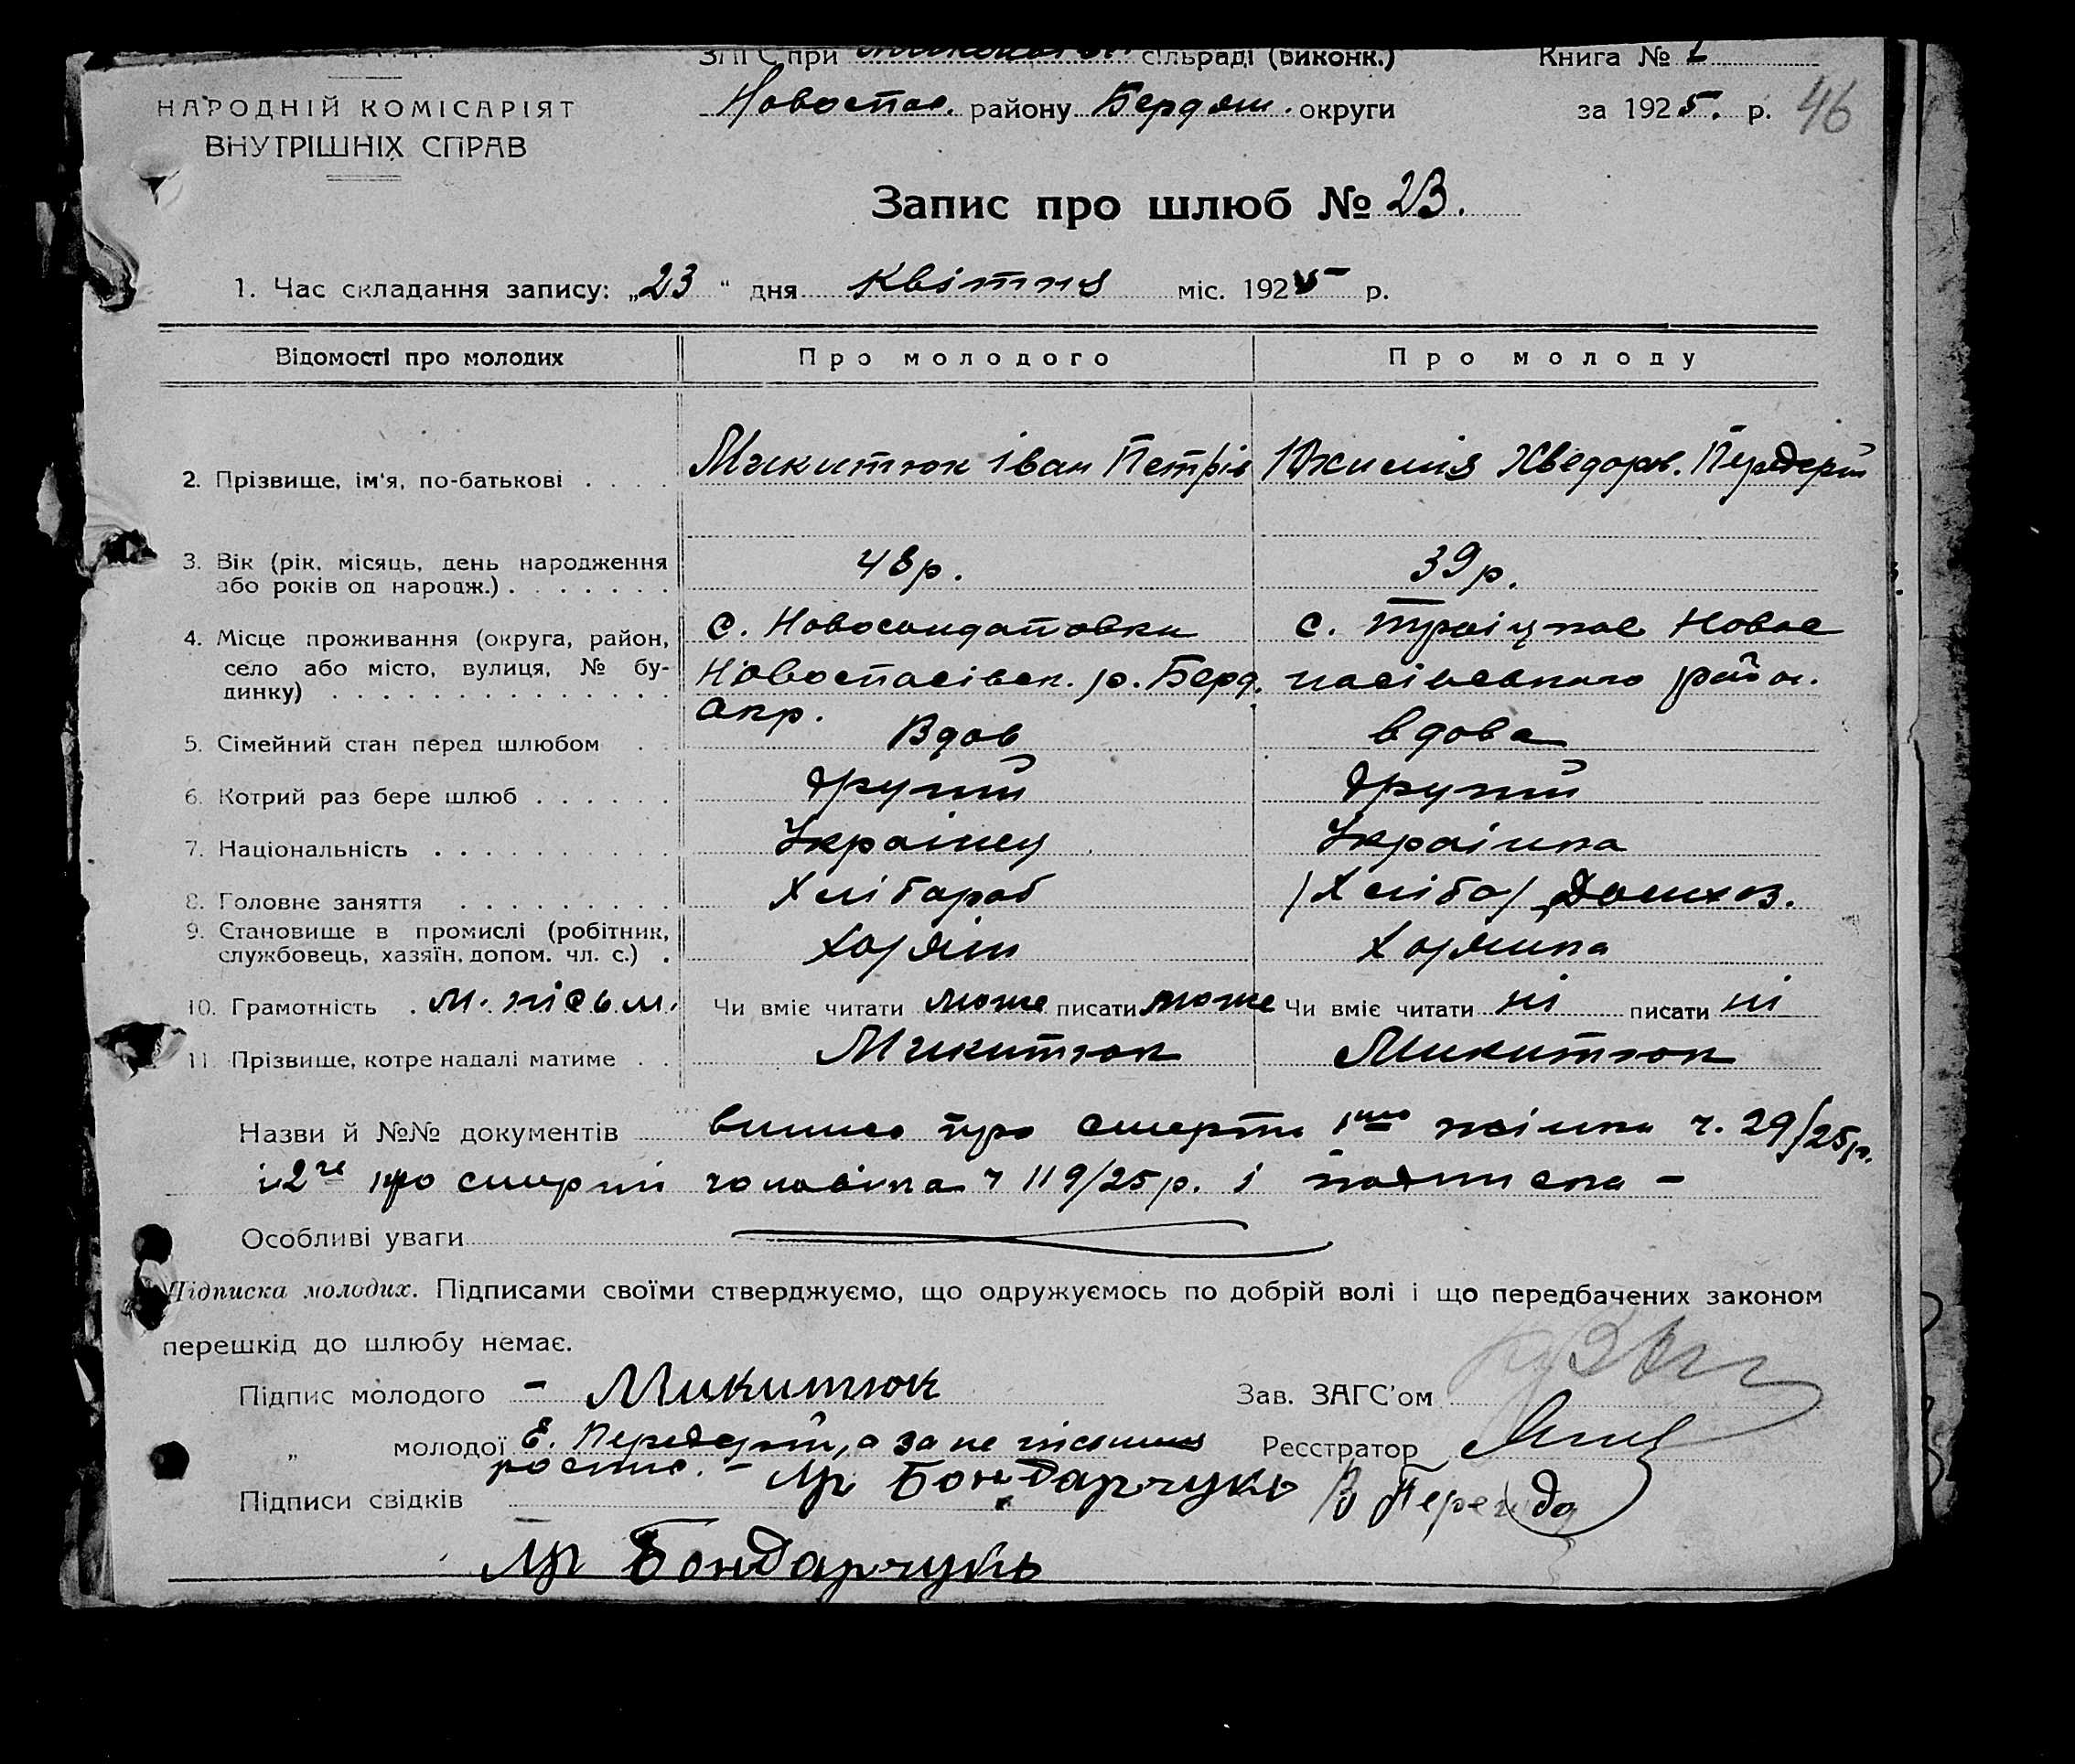 ЗАГС при сільраді (виконк.) Книга № 1
НАРОДНІЙ КОМІСАРІЯТ
ВНУТРІШНІХ СПРАВ
Новоспас. району Бердян. округи за 1925. р. 46
Запис про шлюб № 23.
1. Час складання запису: „23 " дня Квітня міс. 1925 р.
Відомості про молодих Про молодого Про молоду
2. Прізвище, ім'я, по-батькові . . . . Микитюк Іван Петрів Хведоров. Передерій
3. Вік (рік, місяць, день народження
або років од народж.) . . . . . . . 48р. 39р.
4. Місце проживання (округа, район,
село або місто, вулиця, № бу-
динку) . . . . . . . . . . . . . .
с. Новосолдатовки
Новоспасівск. р. Берд.
Окр.
с. Троіцкое Новос
пасівського район.
5. Сімейний стан перед шлюбом . . Вдов вдова
6. Котрий раз бере шлюб . . . . . . другий другий
7. Національність . . . . . . . . . . Украінец Украінка
8. Головне заняття . . . . . . . . . Хлібороб /Хлібо/ Домхоз.
9. Становище в промислі (робітник,
службовець, хазяїн, допом. чл. с.) . Хазяін Хазяйка
10. Грамотність . м. пісьм. Чи вміє читати може писати може Чи вміє читати ні писати ні
11. Прізвище, котре надалі матиме . . Микитюк Микитюк
Назви й №№ документів випис про смерть 1шо жінки ч. 29/25р.
і 2ге про смерть чоловіка ч 119/25р. і подписка –
Особливі уваги
Підписка молодих. Підписами своїми стверджуємо, що одружуємось по добрій волі і що передбачених законом
перешкід до шлюбу немає.
Підпис молодого – Микитюк Зав. ЗАГС'ом
„ молодої Е. Передерій, а за не письмену Реєстратор
роспис. – Бондарчукъ
Підписи свідків
Бондарчукъ